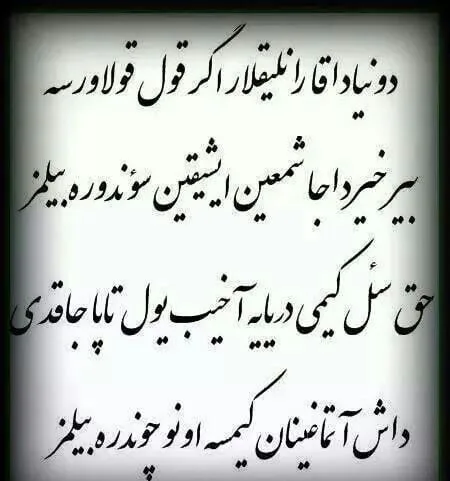 دونیادا قارانلیقلار اگر قول قولا ورسه
بیر خیرداجا شمعین ایشیقین سؤندوره بیلمز
حق سئل کیمی دریایه آخیب یول تاپاجاقدی
داش آتماغینان کیمسه اونو چوندره بیلمز